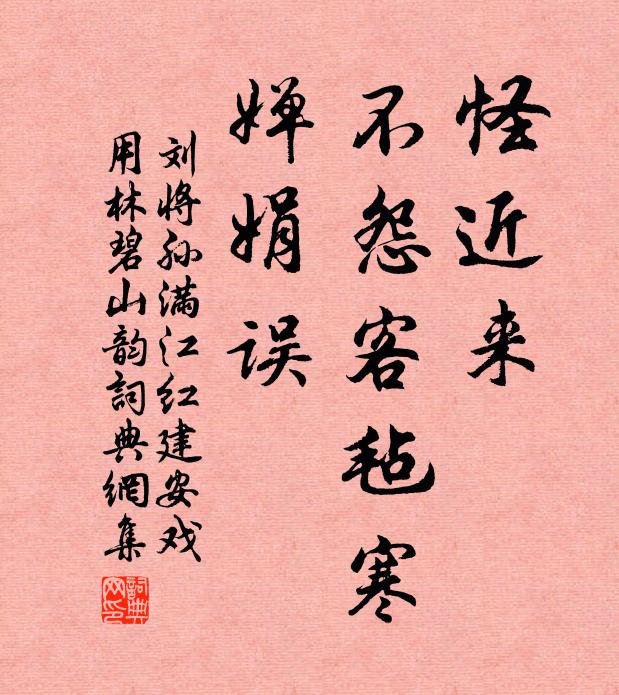 怪近来
不怨客毡寒
婵娟误
刘将孙满江红建安戏
用林碧山韵詞典網集
詞典网印